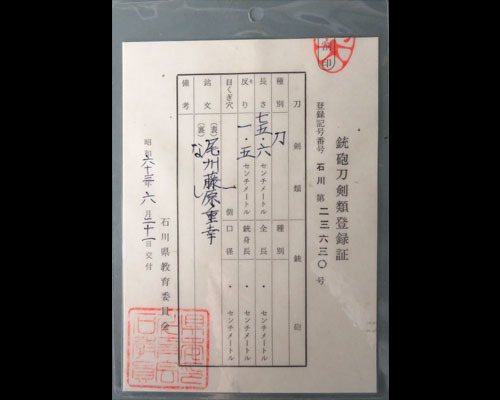 銃砲刀剣類登録証
登録記号番号 石川 第 二三六三〇 号
刀剣類 銃砲
種別 刀 種別
長さ 七五・六 センチメートル 全長 ・ センチメートル
反り 一・五 センチメートル 銃身長 ・ センチメートル
目くぎ穴 一 個 口径 ・ センチメートル
銘文 (表) 尾州藤原重幸
(裏) なし
備考
昭和六十三年 六月二十一日交付
石川県教育委員会